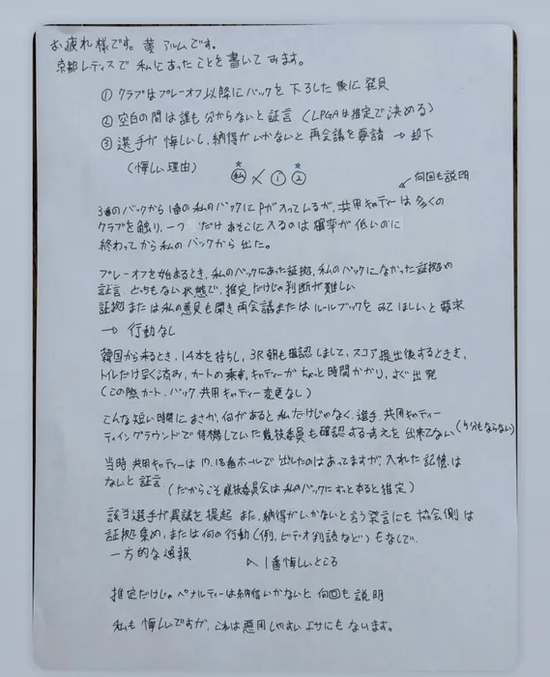 お疲れ様です。黄 アルムです。
京都レディスで 私にあったことを書いてみます。
① クラブはプレーオフ以降にバックを下ろした後に発見
② 空白の間は誰も分からないと証言 (LPGAは推定で決める)
③ 選手が悔しいし、納得がいかないと再会議を要請 → 却下
(悔しい理由)
私 × ① ②
何回も説明
3番のバックから1番の私のバックにPが入っているが、共用キャディーは多くの
クラブを触り、一つだけあそこに入るのは確率が低いのに
終わってから私のバックから出た。
プレーオフを始まるとき、私のバックにあった証拠、私のバックになかった証拠や
証言 どっちもない状態で、推定だけじゃ判断が難しい
証拠または私の意見も聞き再会議またはルールブックをみてほしいと要求
→ 行動なし
韓国から来るとき、14本を持ちし、3R朝も確認しまして、スコア提出後するときまで、
トイレだけ早く済み、カートの乗車、キャディーがちょっと時間かかり、すぐ出発
(この際カート、バック、共用キャディー変更なし)
こんな短い時間にまさか、何があると私だけじゃなく、選手、共用キャディー
ティイングラウンドで待機していた競技委員も確認する考えを出来てない (5分もならない)
当時、共用キャディーは17、18番ホールで出したのはあってますが、入れた記憶は
ないと証言
(だからこそ競技委員会は私のバックにずっとあると推定)
該当選手が異議を提起 また、納得がいかないと言う発言にも協会側は
証拠集め、または何の行動(例、ビデオ判読など)もなしで、
一方的な通報
1番悔しいところ
推定だけじゃペナルティーは納得いかないと何回も説明
私も悔しいですが、これは悪用しやすいようにもなります。